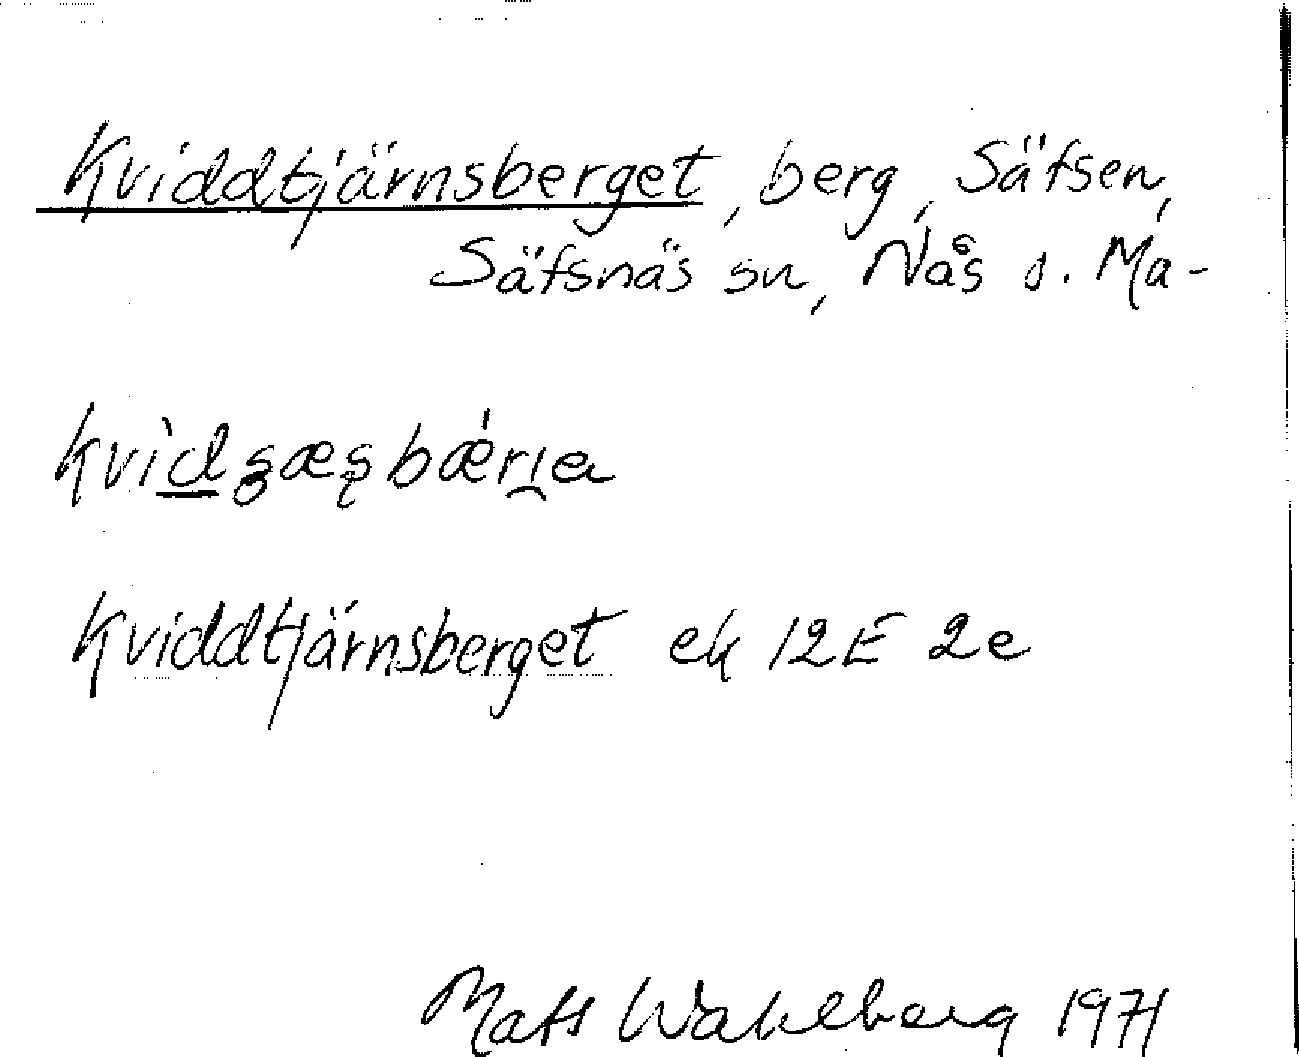 Kviddtjärnsberget, berg, Säfsen,
Säfsnäs sn, Nås d. Ma-
Kviddtjärnsberget ek 12E 2e
Mats Wahlberg 1971